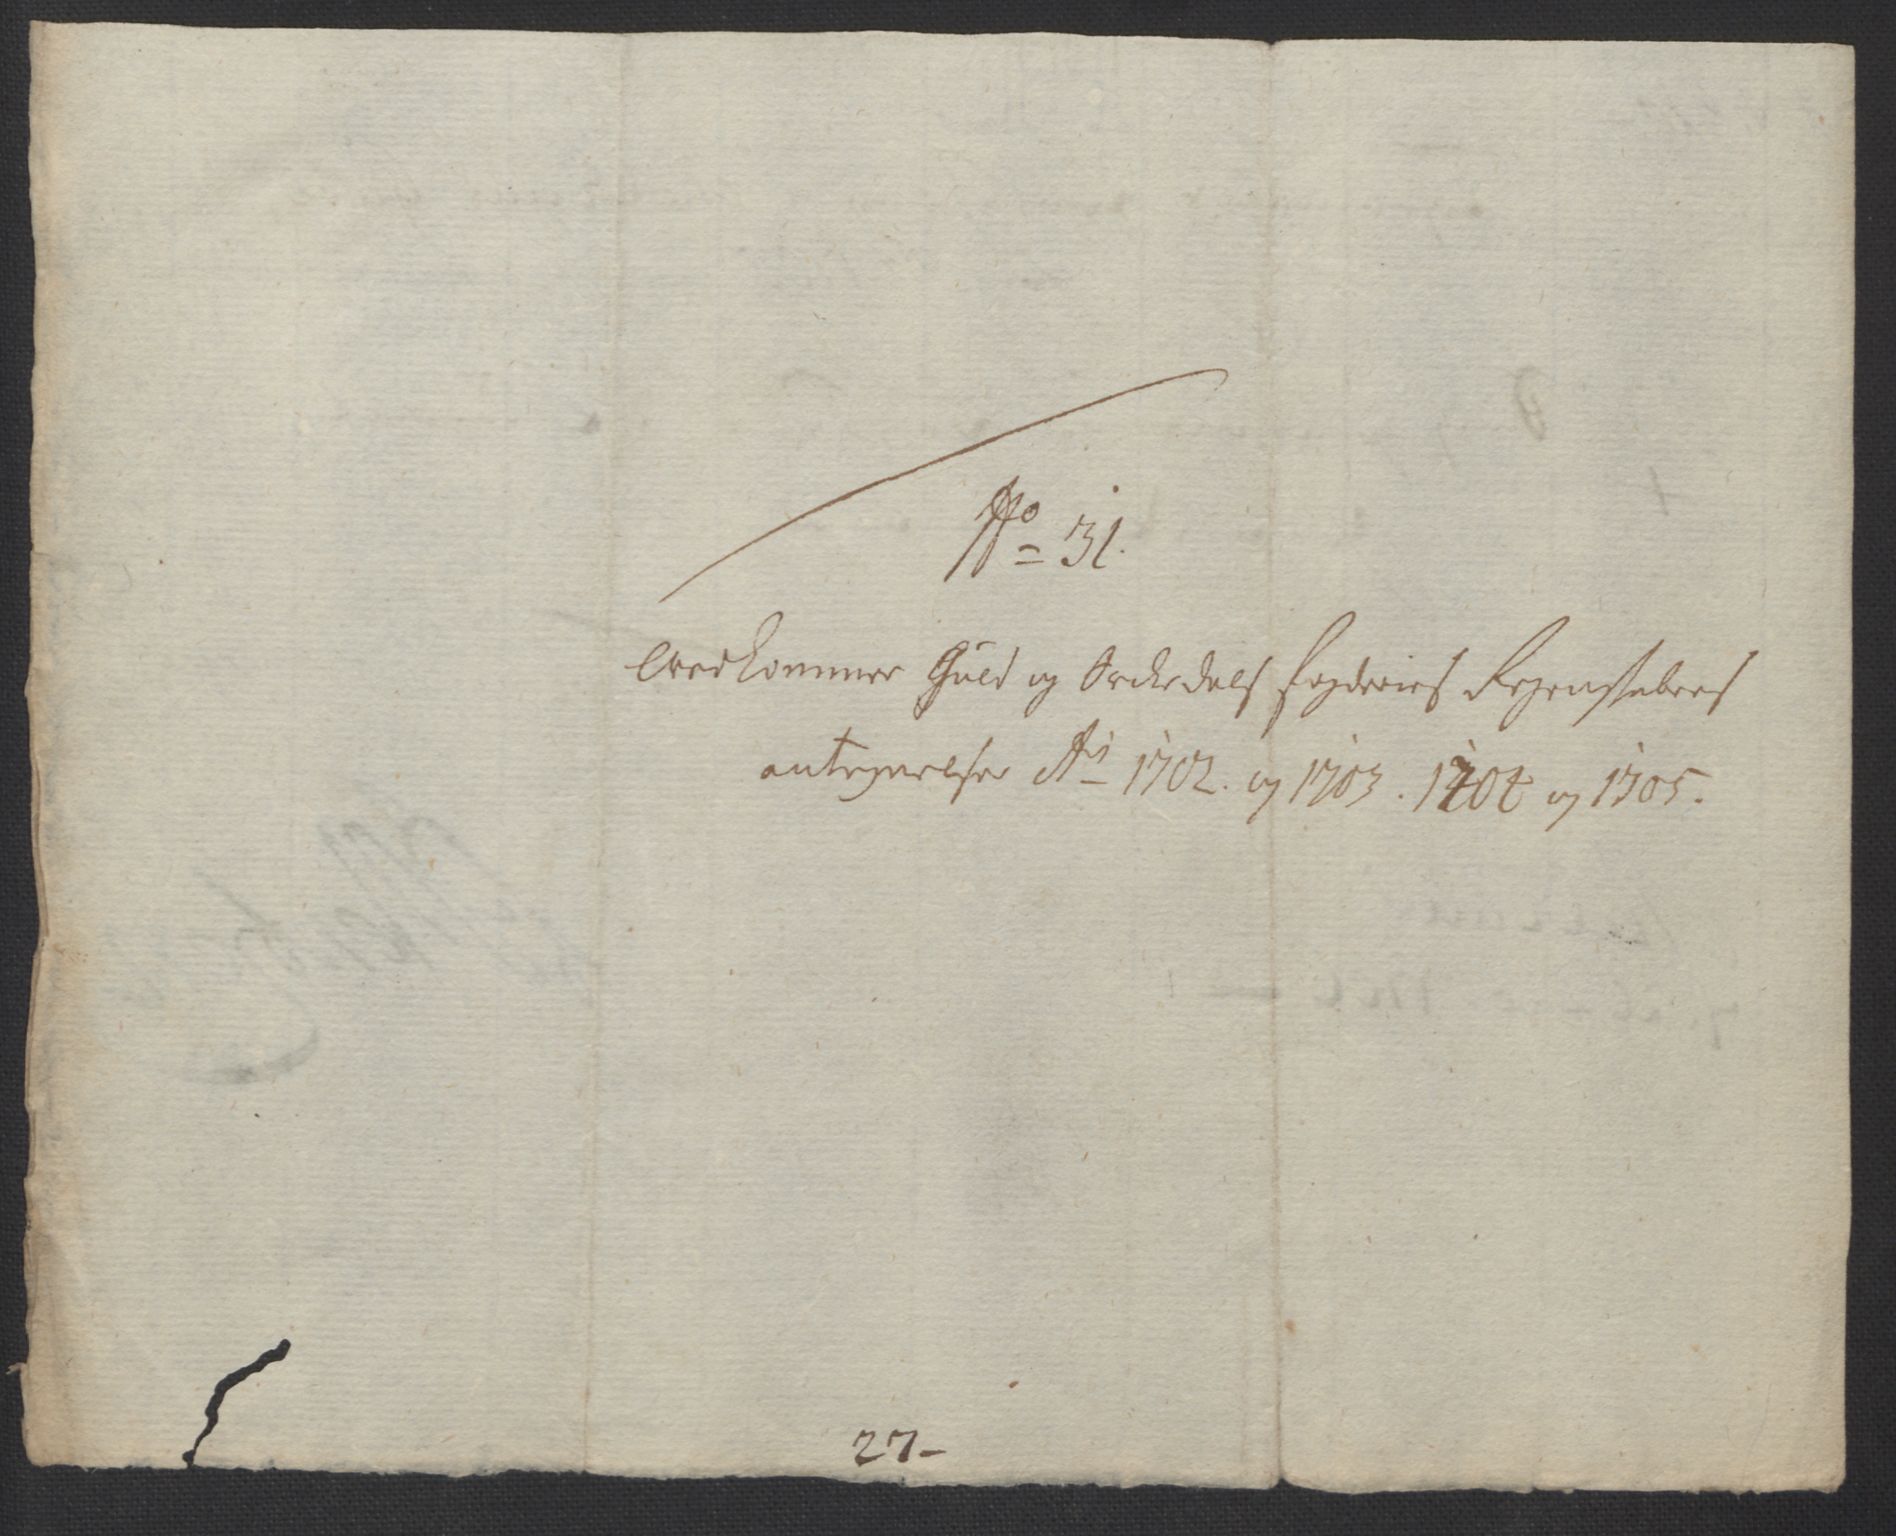 No 31.
Vedkommer Guld og Orckedals fogderies Regenskabers
antegnelser Ao 1702. og 1703. 1704 og 1705.
27-